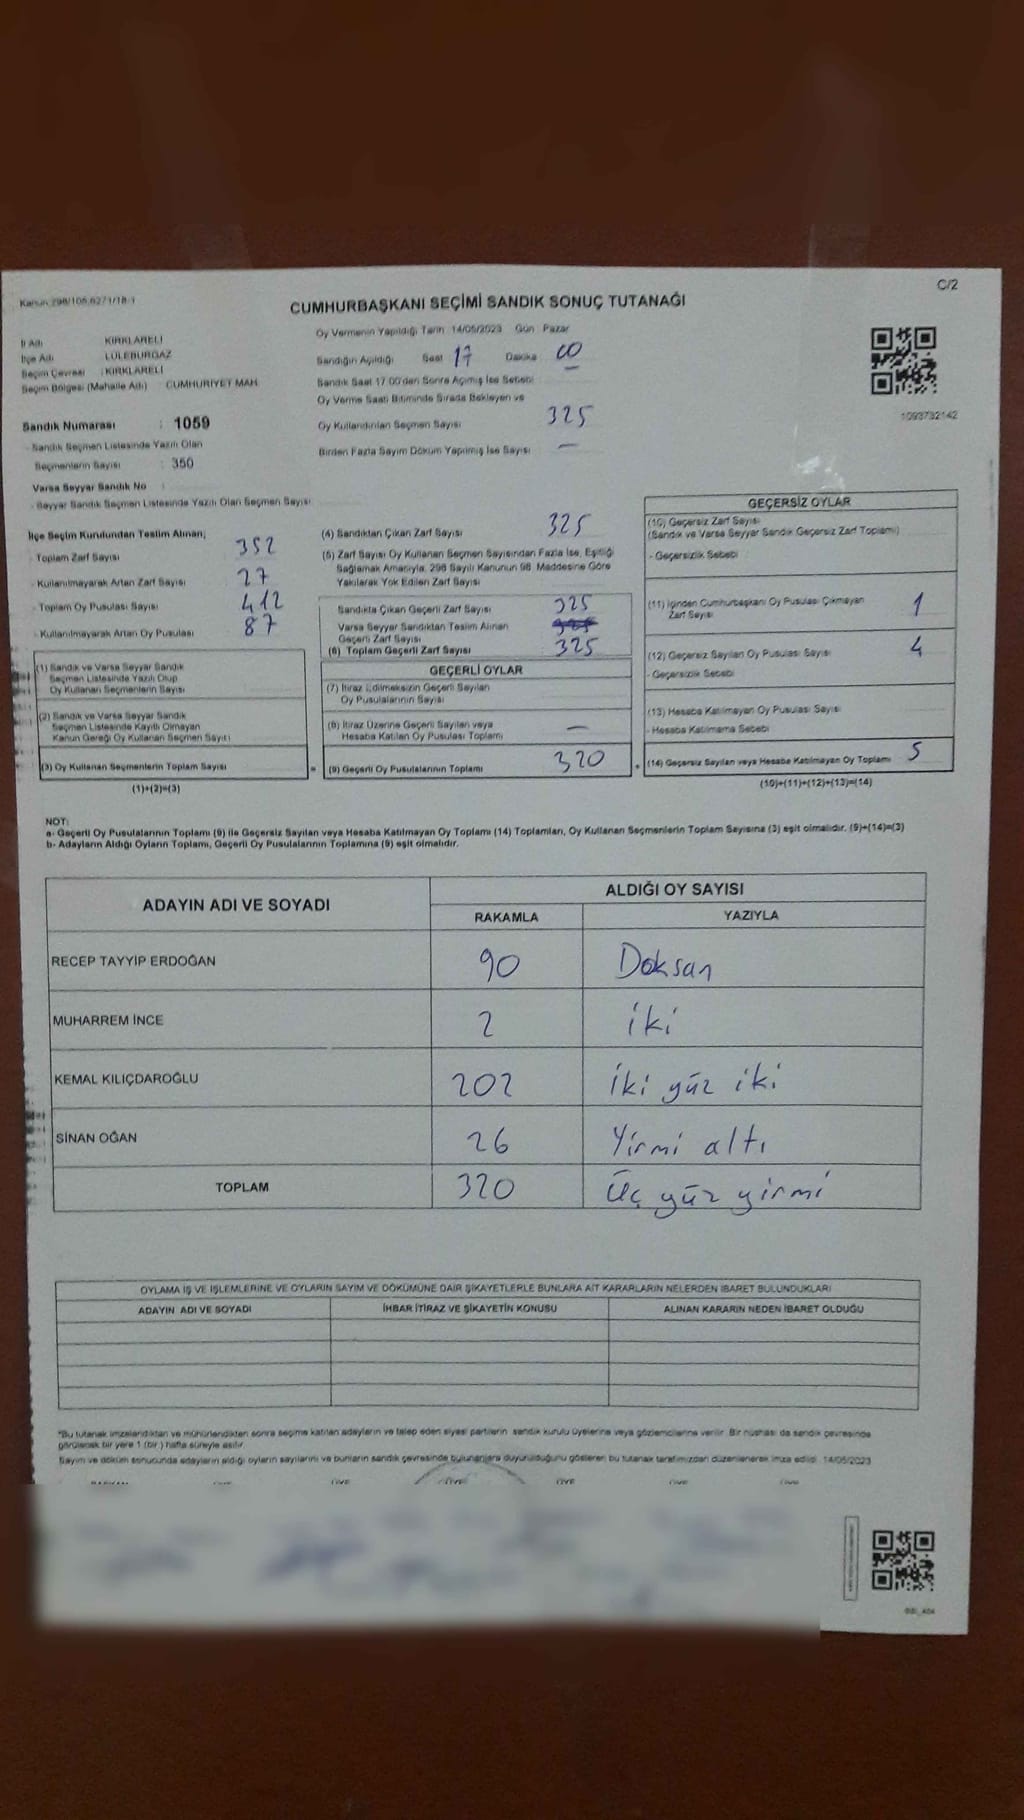 C/2
Kanun 298/105,6271/18-1
CUMHURBAŞKANI SEÇİMİ SANDIK SONUÇ TUTANAĞI
İl Adı : KIRKLARELİ
İlçe Adı : LÜLEBURGAZ
Seçim Çevresi : KIRKLARELİ
Seçim Bölgesi (Mahalle Adı) : CUMHURİYET MAH.
Oy Vermenin Yapıldığı Tarih 14/05/2023 Gün Pazar
Sandığın Açıldığı Saat 17 Dakika 00
Sandık Saat 17.00'den Sonra Açılmış İse Sebebi
Oy Verme Saati Bitiminde Sırada Bekleyen ve
Oy Kullandırılan Seçmen Sayısı 325
Birden Fazla Sayım Döküm Yapılmış İse Sayısı —
1093732142
Sandık Numarası : 1059
- Sandık Seçmen Listesinde Yazılı Olan
Seçmenlerin Sayısı : 350
Varsa Seyyar Sandık No :
- Seyyar Sandık Seçmen Listesinde Yazılı Olan Seçmen Sayısı :
İlçe Seçim Kurulundan Teslim Alınan;
- Toplam Zarf Sayısı 352
- Kullanılmayarak Artan Zarf Sayısı 27
- Toplam Oy Pusulası Sayısı 412
- Kullanılmayarak Artan Oy Pusulası 87
(1) Sandık ve Varsa Seyyar Sandık
Seçmen Listesinde Yazılı Olup
Oy Kullanan Seçmenlerin Sayısı
(2) Sandık ve Varsa Seyyar Sandık
Seçmen Listesinde Kayıtlı Olmayan
Kanun Gereği Oy Kullanan Seçmen Sayısı
(3) Oy Kullanan Seçmenlerin Toplam Sayısı
(1)+(2)=(3)
(4) Sandıktan Çıkan Zarf Sayısı 325
(5) Zarf Sayısı Oy Kullanan Seçmen Sayısından Fazla İse, Eşitliği
Sağlamak Amacıyla, 298 Sayılı Kanunun 98. Maddesine Göre
Yakılarak Yok Edilen Zarf Sayısı
Sandıkta Çıkan Geçerli Zarf Sayısı 325
Varsa Seyyar Sandıktan Teslim Alınan
Geçerli Zarf Sayısı
(6) Toplam Geçerli Zarf Sayısı 325
GEÇERLİ OYLAR
(7) İtiraz Edilmeksizin Geçerli Sayılan
Oy Pusulalarının Sayısı
(8) İtiraz Üzerine Geçerli Sayılan veya
Hesaba Katılan Oy Pusulası Toplamı —
= (9) Geçerli Oy Pusulalarının Toplamı 320
GEÇERSİZ OYLAR
(10) Geçersiz Zarf Sayısı
(Sandık ve Varsa Seyyar Sandık Geçersiz Zarf Toplamı)
- Geçersizlik Sebebi
(11) İçinden Cumhurbaşkanı Oy Pusulası Çıkmayan
Zarf Sayısı 1
(12) Geçersiz Sayılan Oy Pusulası Sayısı 4
- Geçersizlik Sebebi
(13) Hesaba Katılmayan Oy Pusulası Sayısı
- Hesaba Katılmama Sebebi
+ (14) Geçersiz Sayılan veya Hesaba Katılmayan Oy Toplamı 5
(10)+(11)+(12)+(13)=(14)
NOT:
a- Geçerli Oy Pusulalarının Toplamı (9) ile Geçersiz Sayılan veya Hesaba Katılmayan Oy Toplamı (14) Toplamları, Oy Kullanan Seçmenlerin Toplam Sayısına (3) eşit olmalıdır. (9)+(14)=(3)
b- Adayların Aldığı Oyların Toplamı, Geçerli Oy Pusulalarının Toplamına (9) eşit olmalıdır.
ADAYIN ADI VE SOYADI ALDIĞI OY SAYISI
RAKAMLA YAZIYLA
RECEP TAYYİP ERDOĞAN 90 Doksan
MUHARREM İNCE 2 iki
KEMAL KILIÇDAROĞLU 202 iki yüz iki
SİNAN OĞAN 26 Yirmi altı
TOPLAM 320 Üç yüz yirmi
OYLAMA İŞ VE İŞLEMLERİNE VE OYLARIN SAYIM VE DÖKÜMÜNE DAİR ŞİKAYETLERLE BUNLARA AİT KARARLARIN NELERDEN İBARET BULUNDUKLARI
ADAYIN ADI VE SOYADI İHBAR İTİRAZ VE ŞİKAYETİN KONUSU ALINAN KARARIN NEDEN İBARET OLDUĞU
*Bu tutanak imzalandıktan ve mühürlendikten sonra seçime katılan adayların ve talep eden siyasi partilerin sandık kurulu üyelerine veya gözlemcilerine verilir. Bir nüshası da sandık çevresinde
görülecek bir yere 1 (bir ) hafta süreyle asılır.
Sayım ve döküm sonucunda adayların aldığı oyların sayılarını ve bunların sandık çevresinde bulunanlara duyurulduğunu gösteren bu tutanak tarafımızdan düzenlenerek imza edildi. 14/05/2023
BAŞKAN ÜYE ÜYE ÜYE ÜYE ÜYE